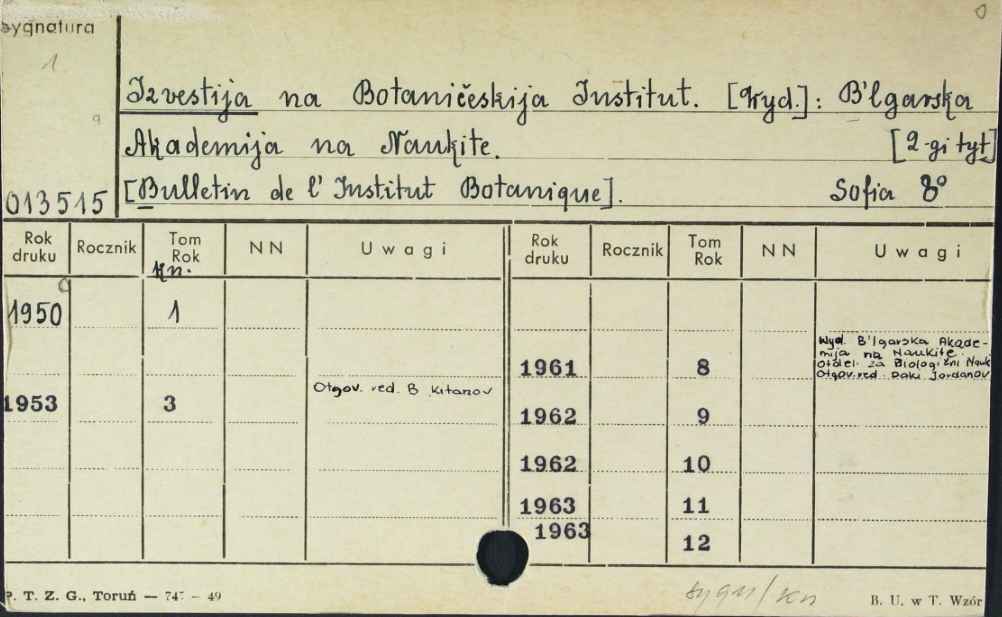 Sygnatura
1
Izvestija na Botaničeskija Institut. [Wyd.]: B'lgarska
Akademija na Naukite. [2-gi tyt]
013515 [Bulletin de l' Institut Botanique]. Sofia 8°
Rok druku Rocznik Tom Rok NN Uwagi Rok druku Rocznik Tom Rok NN Uwagi
kn.
1950 1
1953 3 Otgov. red. B. Kitanov
Wyd. B'lgarska Akade-
mija na Naukite.
Otdel. za Biologični Nauk
Otgov. red. Daki Jordanov
1961 8
1962 9
1962 10
1963 11
1963 12
P. T. Z. G., Toruń — 747 — 49
sygn/kn
B. U. w T. Wzór